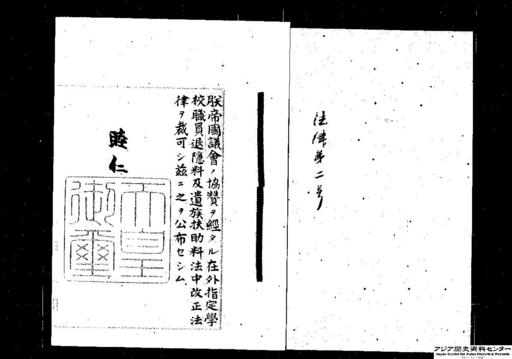 法律第二号
朕帝國議會ノ協贊ヲ經タル在外指定學
校職員退隱料及遺族扶助料法中改正法
律ヲ裁可シ茲ニ之ヲ公布セシム
睦仁
天皇御璽
アジア歴史資料センター
Japan Center for Asian Historical Records